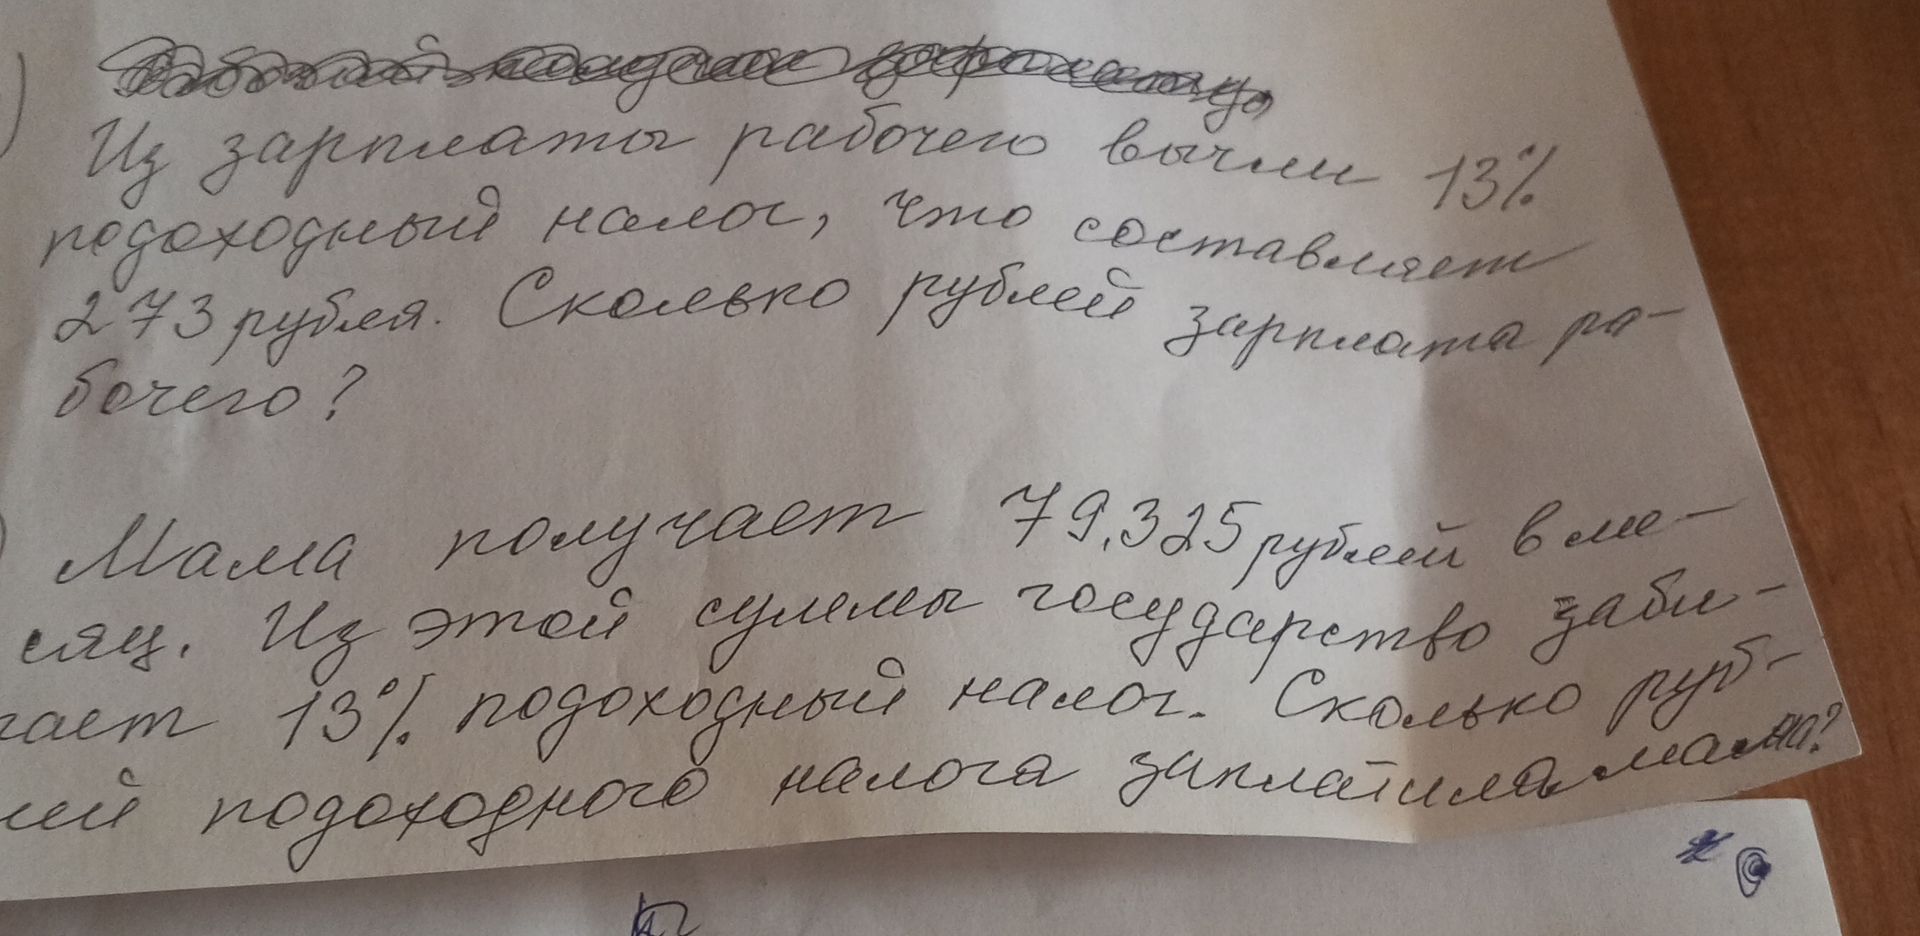 Из зарплаты рабочего вычли 13%
подоходный налог, что составляет
273 рубля. Сколько рублей зарплата ра-
бочего?
Мама получает 79.325 рублей в ме-
сяц. Из этой суммы государство заби-
рает 13% подоходный налог. Сколько руб-
лей подоходного налога заплатила мама?